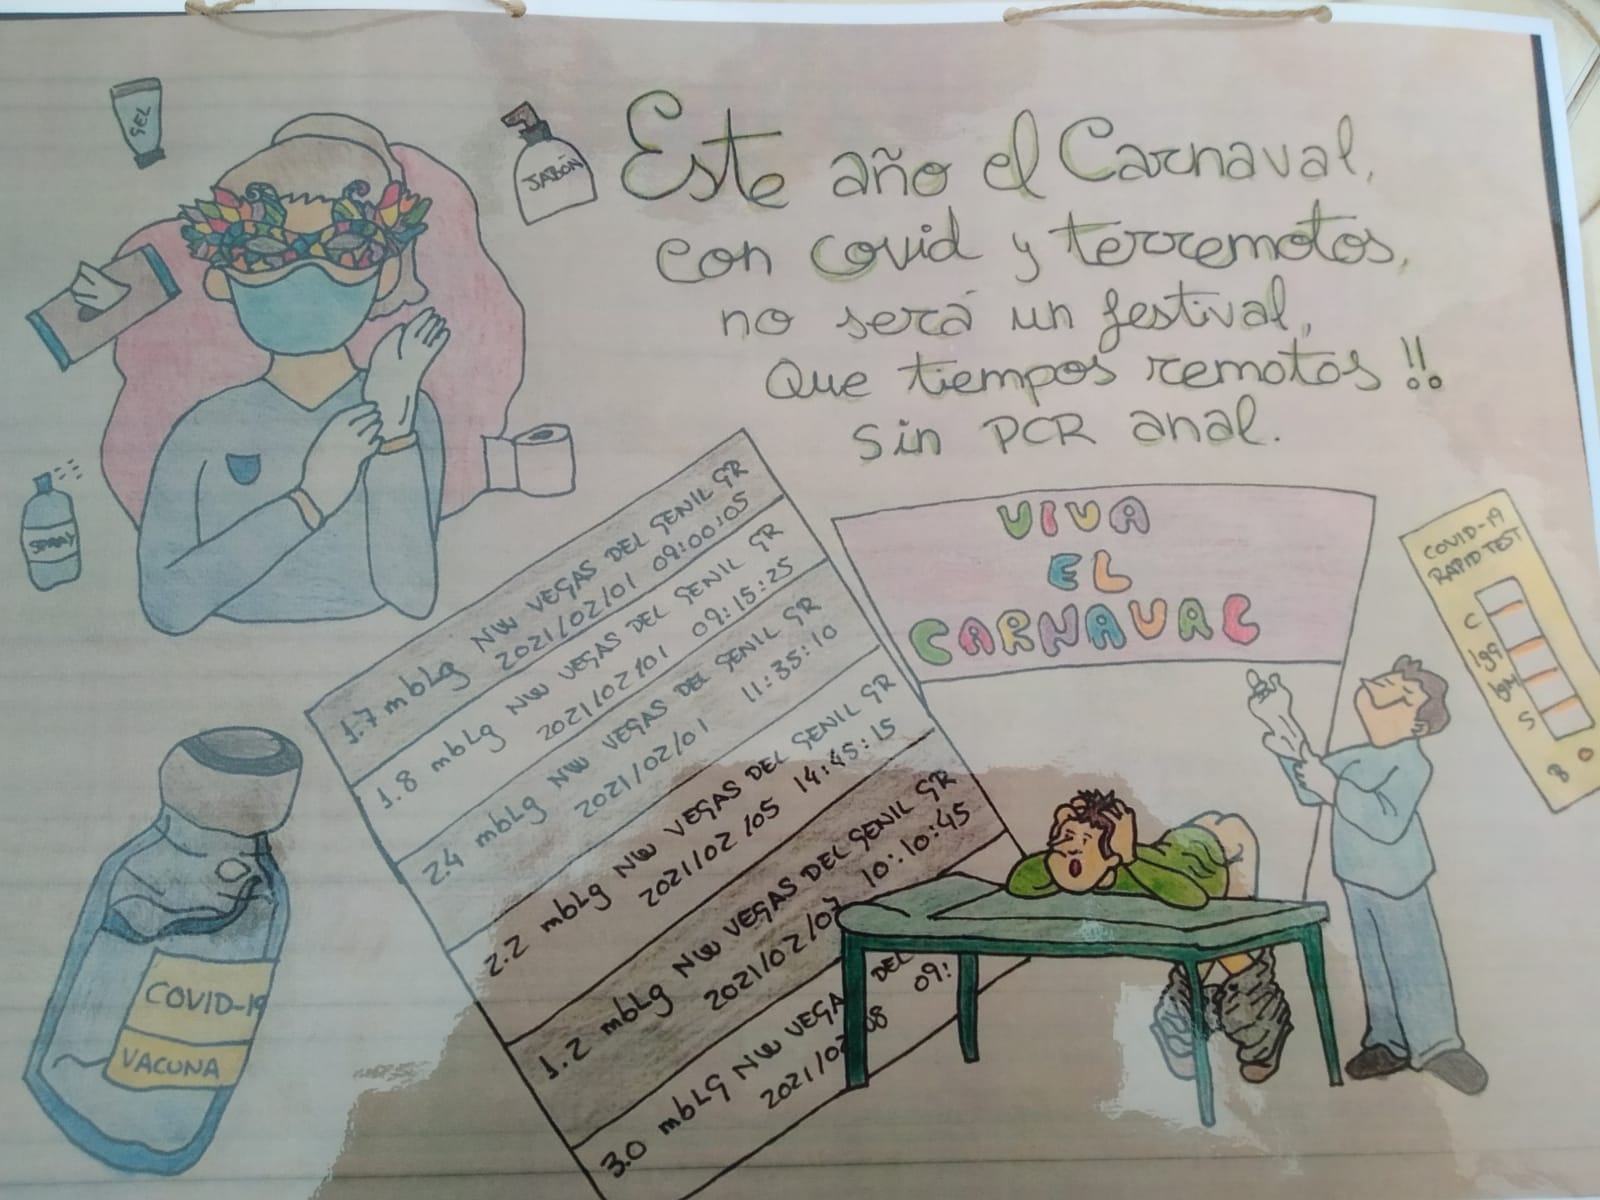 GEL
JABÓN
Este año el Carnaval,
con covid y terremotos,
no será un festival,
Que tiempos remotos !!
sin PCR anal.
SPRAY
1.7 mbLg NW VEGAS DEL GENIL GR
2021/02/01 09:00:05
1.8 mbLg NW VEGAS DEL GENIL GR
2021/02/01 09:15:25
2.4 mbLg NW VEGAS DEL GENIL GR
2021/02/01 11:35:10
2.2 mbLg NW VEGAS DEL GENIL GR
2021/02/05 14:45:15
1.2 mbLg NW VEGAS DEL GENIL GR
2021/02/07 10:10:45
3.0 mbLg NW VEGA DEL
2021/02/08 09:
VIVA
EL
CARNAVAL
COVID-19
RAPID TEST
C
Igg
IgM
S
B
COVID-19
VACUNA